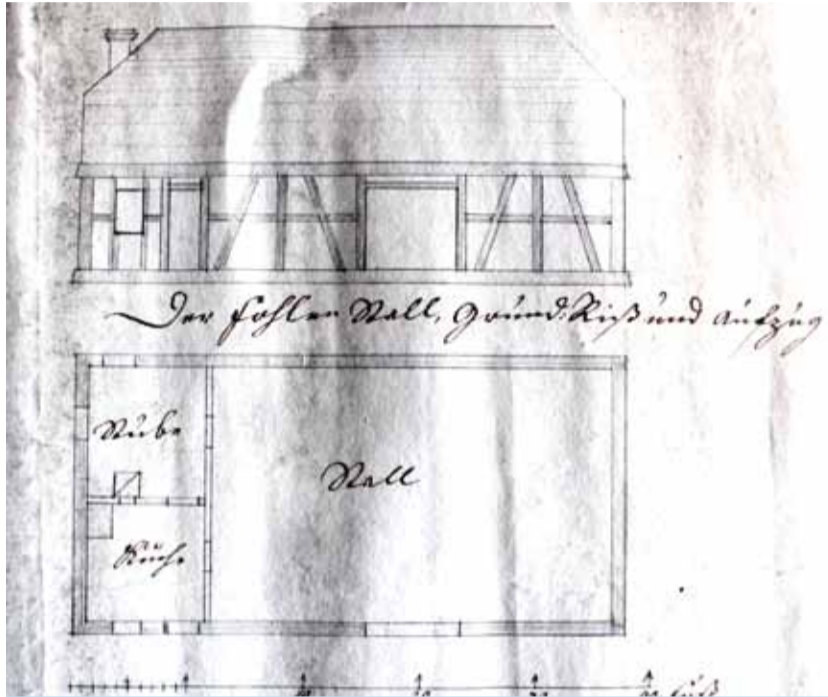 Der Fohlen Stall, Grund-Riß und Aufzug
Stube
Stall
Küche